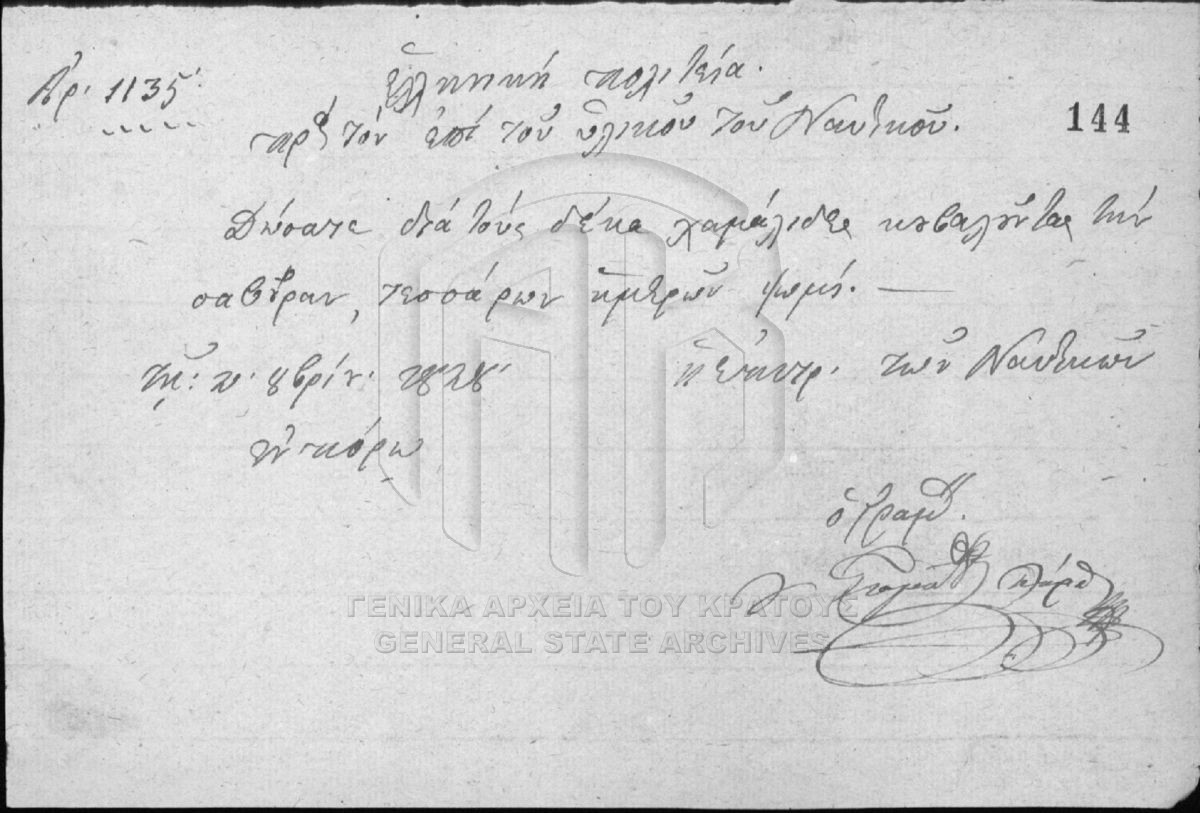 Ἀρ. 1135.
Ἑλληνικὴ πολιτεία.
144
πρὸς τὸν ἐπὶ τοῦ ὑλικοῦ τοῦ Ναυτικοῦ.
Δώσατε διὰ τοὺς δέκα χαμάλιδες κυβαλοῦντας τὴν
σαβούραν, τεσσάρων ἡμερῶν ψωμί. —
τῇ: 8βρίου
ἡ Ἐπιτρ. τῶν Ναυτικῶν
ὁ Γραμ.
ΓΕΝΙΚΑ ΑΡΧΕΙΑ ΤΟΥ ΚΡΑΤΟΥΣ
GENERAL STATE ARCHIVES